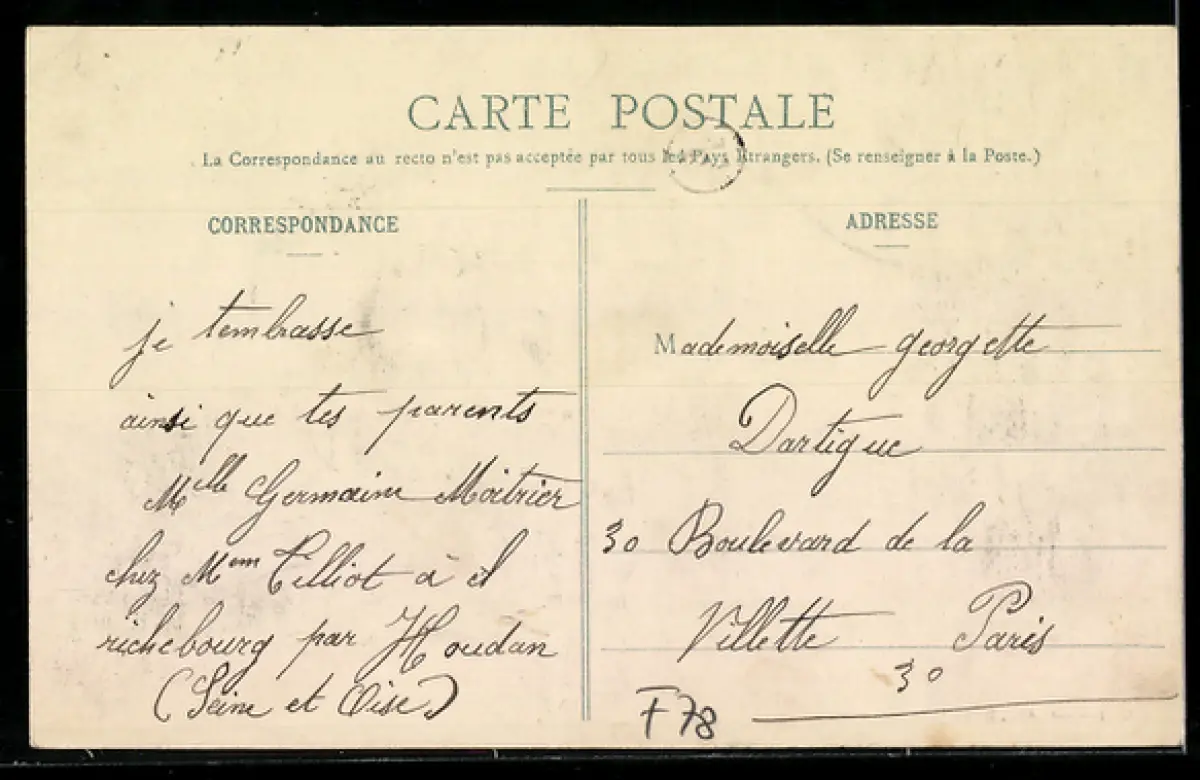 CARTE POSTALE
La Correspondance au recto n'est pas acceptée par tous les Pays Etrangers. (Se renseigner à la Poste.)
CORRESPONDANCE
je tembrasse
ainsi que tes parents
Melle Germaine Moitrier
chez Mem Tilliot à el
richebourg par Houdan
(Seine et Oise)
ADRESSE
Mademoiselle georgette
Dartigue
30 Boulevard de la
Villette Paris
30
F78